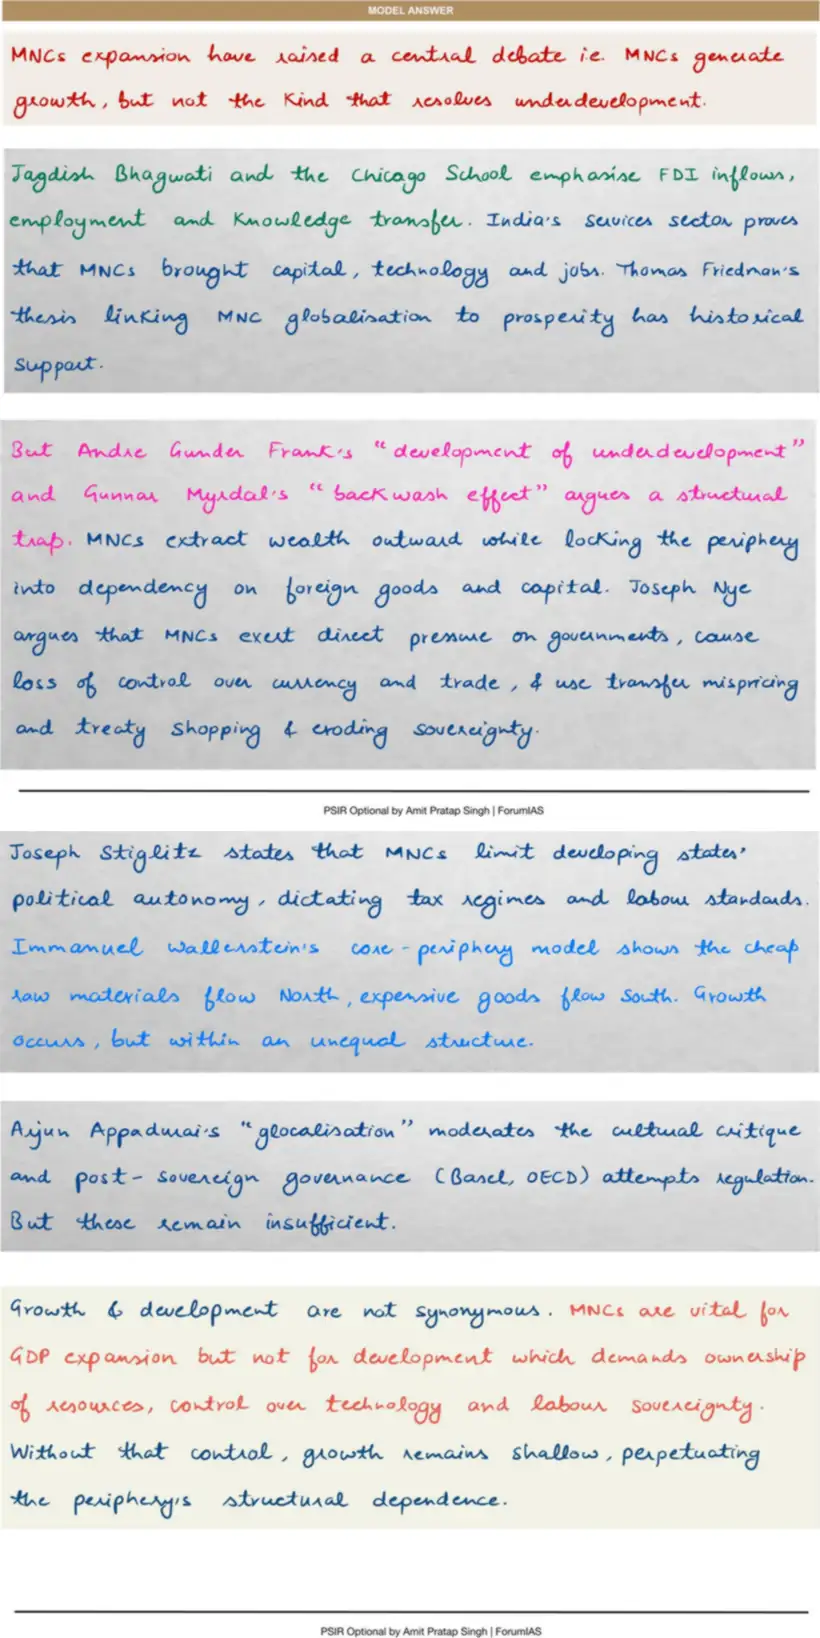 MODEL ANSWER
MNCs expansion have raised a central debate i.e. MNCs generate
growth, but not the kind that resolves underdevelopment.
Jagdish Bhagwati and the Chicago School emphasise FDI inflows,
employment and knowledge transfer. India's services sector proves
that MNCs brought capital, technology and jobs. Thomas Friedman's
thesis linking MNC globalisation to prosperity has historical
support.
But Andre Gunder Frank's "development of underdevelopment"
and Gunnar Myrdal's "backwash effect" argues a structural
trap. MNCs extract wealth outward while locking the periphery
into dependency on foreign goods and capital. Joseph Nye
argues that MNCs exert direct pressure on governments, cause
loss of control over currency and trade, & use transfer mispricing
and treaty shopping & eroding sovereignty.
PSIR Optional by Amit Pratap Singh | ForumIAS
Joseph Stiglitz states that MNCs limit developing states'
political autonomy, dictating tax regimes and labour standards.
Immanuel Wallerstein's core-periphery model shows the cheap
raw materials flow North, expensive goods flow South. Growth
occurs, but within an unequal structure.
Arjun Appadurai's "glocalisation" moderates the cultural critique
and post-sovereign governance (Basel, OECD) attempts regulation.
But these remain insufficient.
Growth & development are not synonymous. MNCs are vital for
GDP expansion but not for development which demands ownership
of resources, control over technology and labour sovereignty.
Without that control, growth remains shallow, perpetuating
the periphery's structural dependence.
PSIR Optional by Amit Pratap Singh | ForumIAS